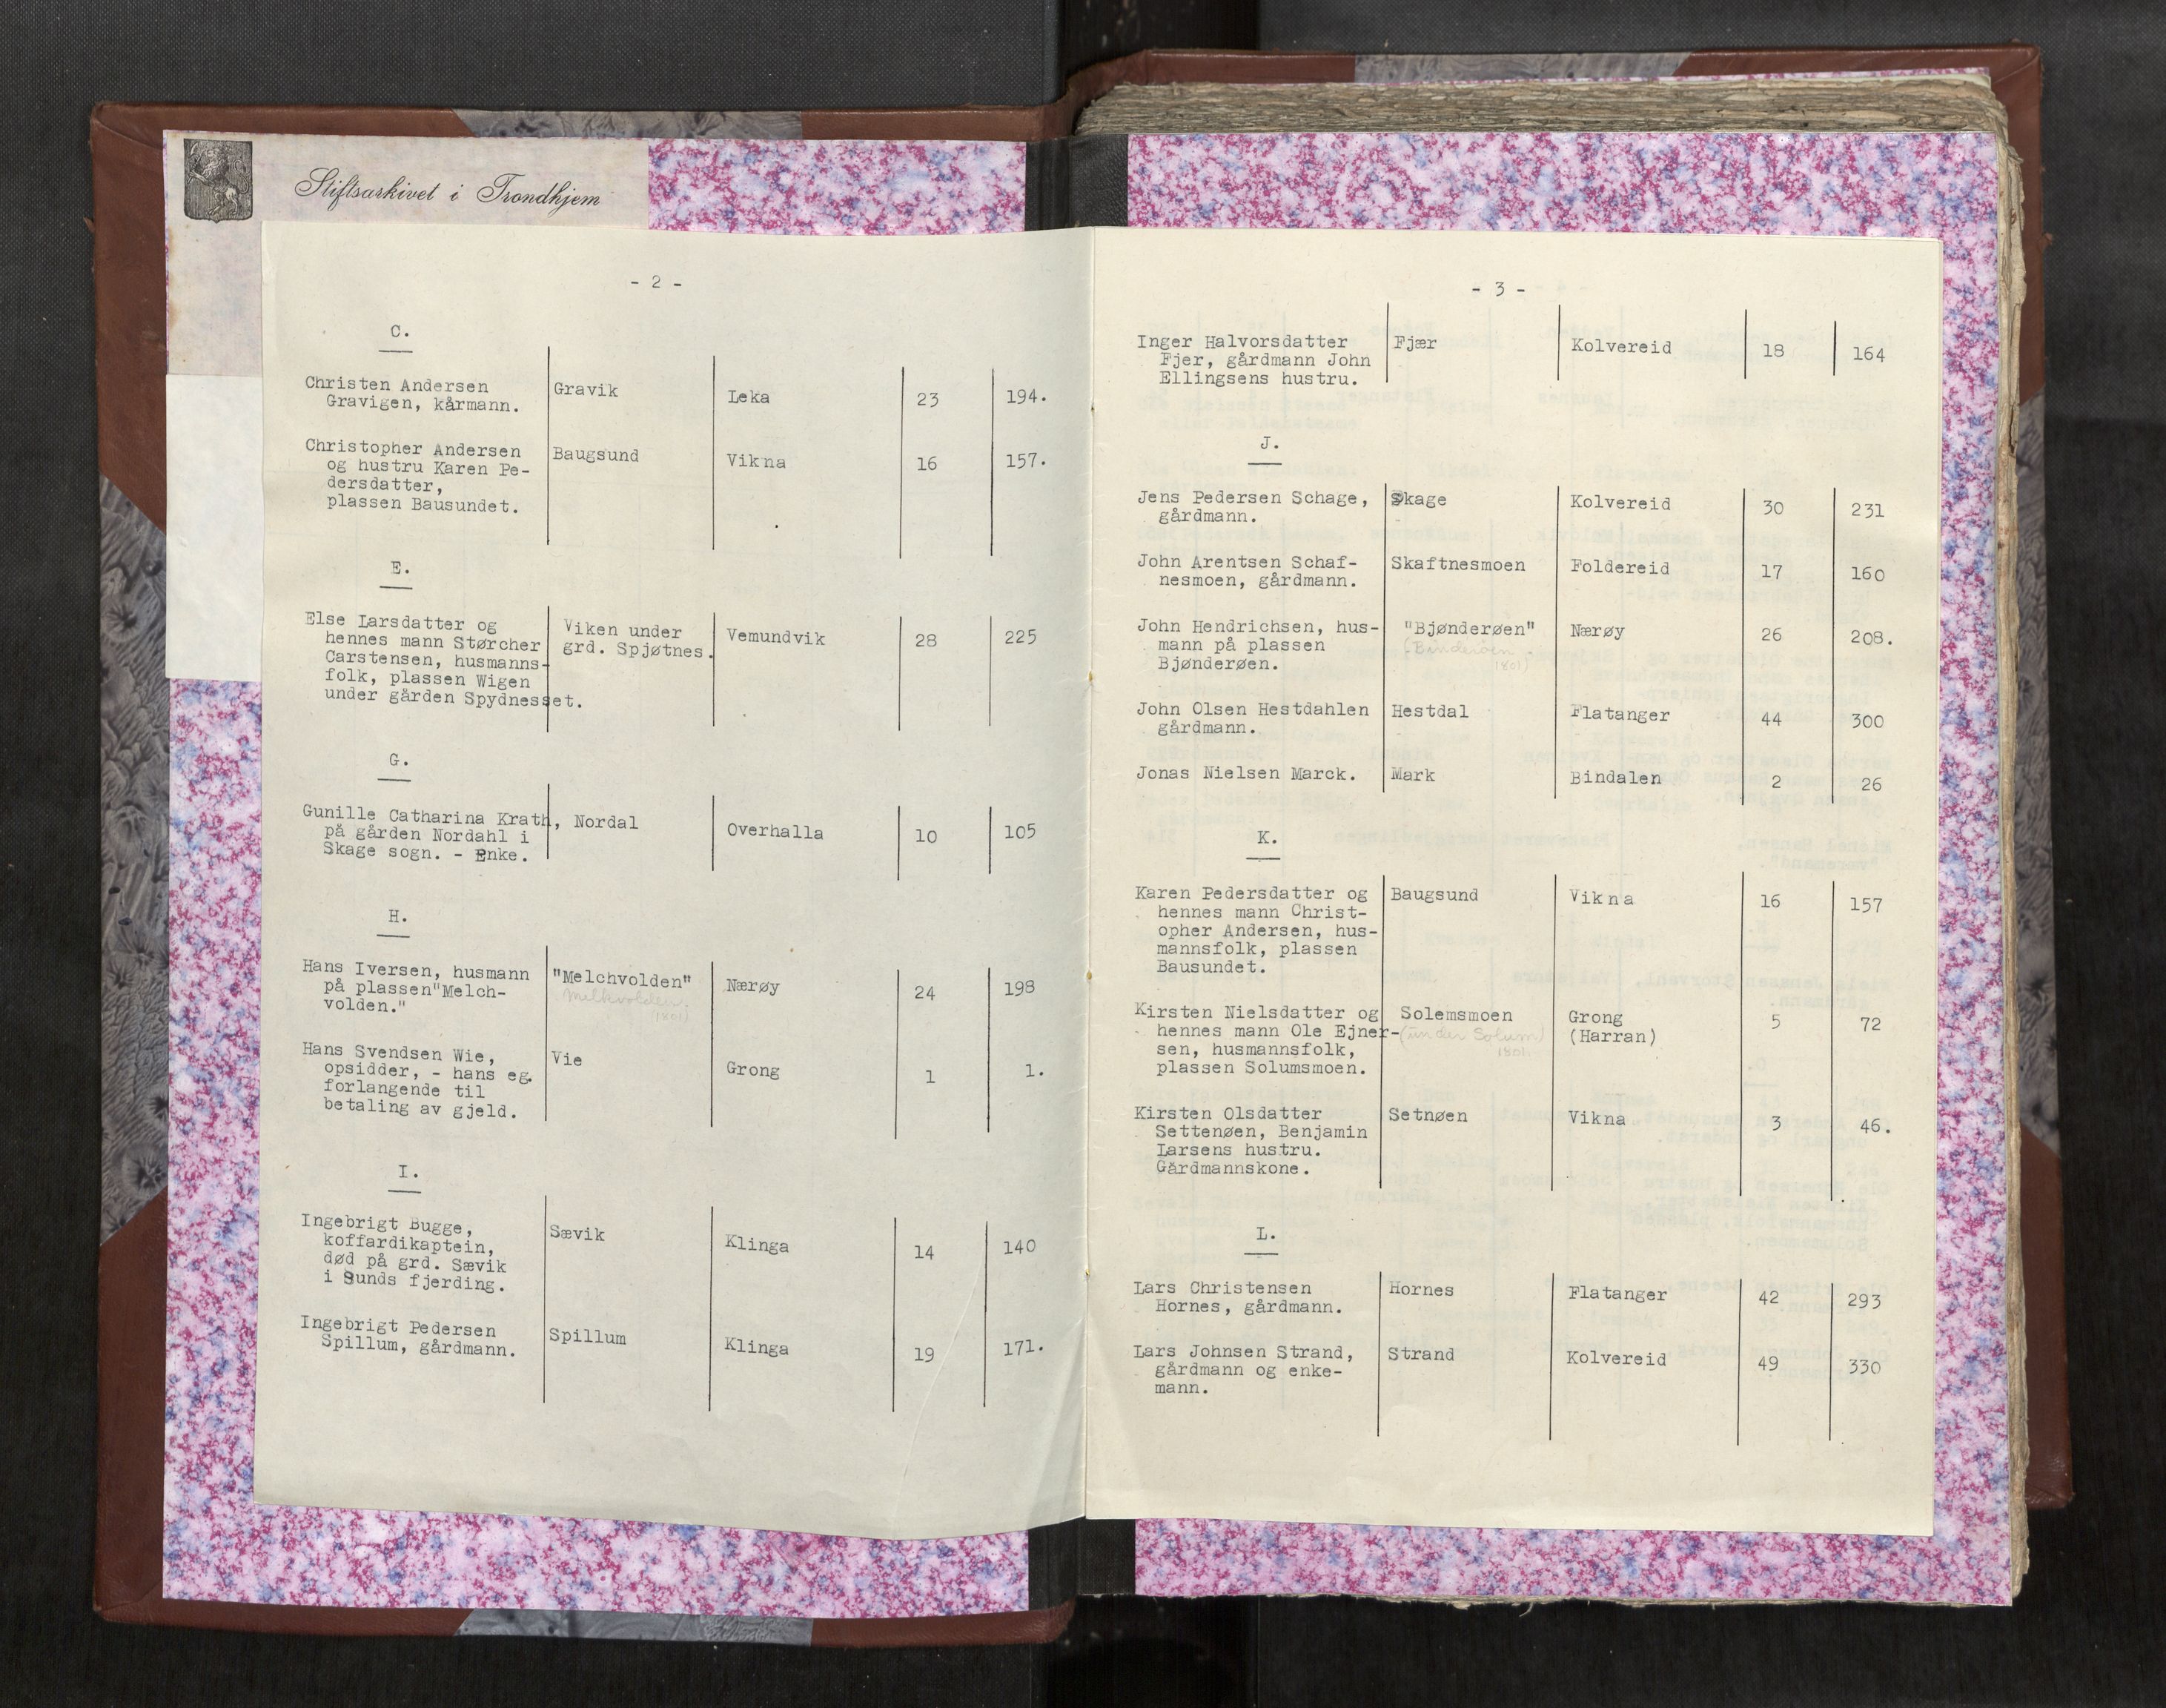 Stiftsarkivet i Trondhjem
- 2 -
C.
Christen Andersen Gravik Leka 23 194.
Gravigen, kårmann.
Christopher Andersen Baugsund Vikna 16 157.
og hustru Karen Pe-
dersdatter,
plassen Bausundet.
E.
Else Larsdatter og Viken under Vemundvik 28 225
hennes mann Størcher grd. Spjøtnes.
Carstensen, husmanns-
folk, plassen Wigen
under gården Spydnesset.
G.
Gunille Catharina Krath, Nordal Overhalla 10 105
på gården Nordahl i
Skage sogn. - Enke.
H.
Hans Iversen, husmann "Melchvolden" Nærøy 24 198
på plassen"Melch- Melkvolden
volden." (1801)
Hans Svendsen Wie, Vie Grong 1 1.
opsidder, - hans eg.
forlangende til
betaling av gjeld.
I.
Ingebrigt Bugge, Sævik Klinga 14 140
koffardikaptein,
død på grd. Sævik
i Sunds fjerding.
Ingebrigt Pedersen Spillum Klinga 19 171.
Spillum, gårdmann.
- 3 -
Inger Halvorsdatter Fjær Kolvereid 18 164
Fjer, gårdmann John
Ellingsens hustru.
J.
Jens Pedersen Schage, Skage Kolvereid 30 231
gårdmann.
John Arentsen Schaf- Skaftnesmoen Foldereid 17 160
nesmoen, gårdmann.
John Hendrichsen, hus- "Bjønderøen" Nærøy 26 208.
mann på plassen (Binderöen
Bjønderøen. 1801)
John Olsen Hestdahlen Hestdal Flatanger 44 300
gårdmann.
Jonas Nielsen Marck. Mark Bindalen 2 26
K.
Karen Pedersdatter og Baugsund Vikna 16 157
hennes mann Christ-
opher Andersen, hus-
mannsfolk, plassen
Bausundet.
Kirsten Nielsdatter og Solemsmoen Grong 5 72
hennes mann Ole Ejner- (under Solum) (Harran)
sen, husmannsfolk, 1801
plassen Solumsmoen.
Kirsten Olsdatter Setnøen Vikna 3 46.
Settenøen, Benjamin
Larsens hustru.
Gårdmannskone.
L.
Lars Christensen Hornes Flatanger 42 293
Hornes, gårdmann.
Lars Johnsen Strand, Strand Kolvereid 49 330
gårdmann og enke-
mann.